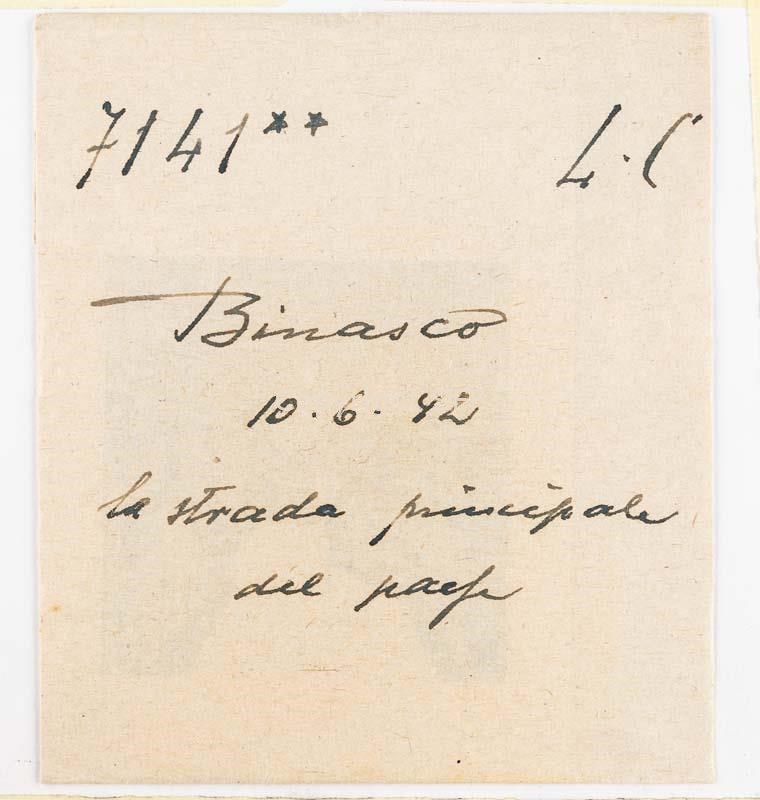 7141** L.C
Binasco
10.6.42
la strada principale
del paese